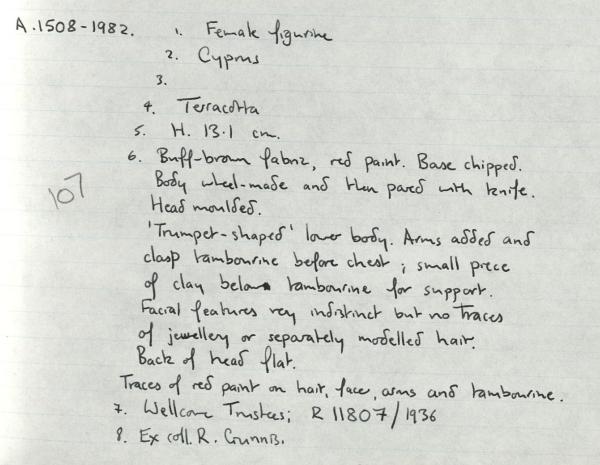 A.1508-1982. 1. Female figurine
2. Cyprus
3.
4. Terracotta
5. H. 13.1 cm.
6. Buff-brown fabric, red paint. Base chipped.
Body wheel-made and then pared with knife.
107
Head moulded.
'Trumpet-shaped' lower body. Arms added and
clasp tambourine before chest; small piece
of clay below tambourine for support.
Facial features very indistinct but no traces
of jewellery or separately modelled hair.
Back of head flat.
Traces of red paint on hair, face, arms and tambourine.
7. Wellcome Trustees; R 11807/1936
8. Ex coll. R. Gunnis.